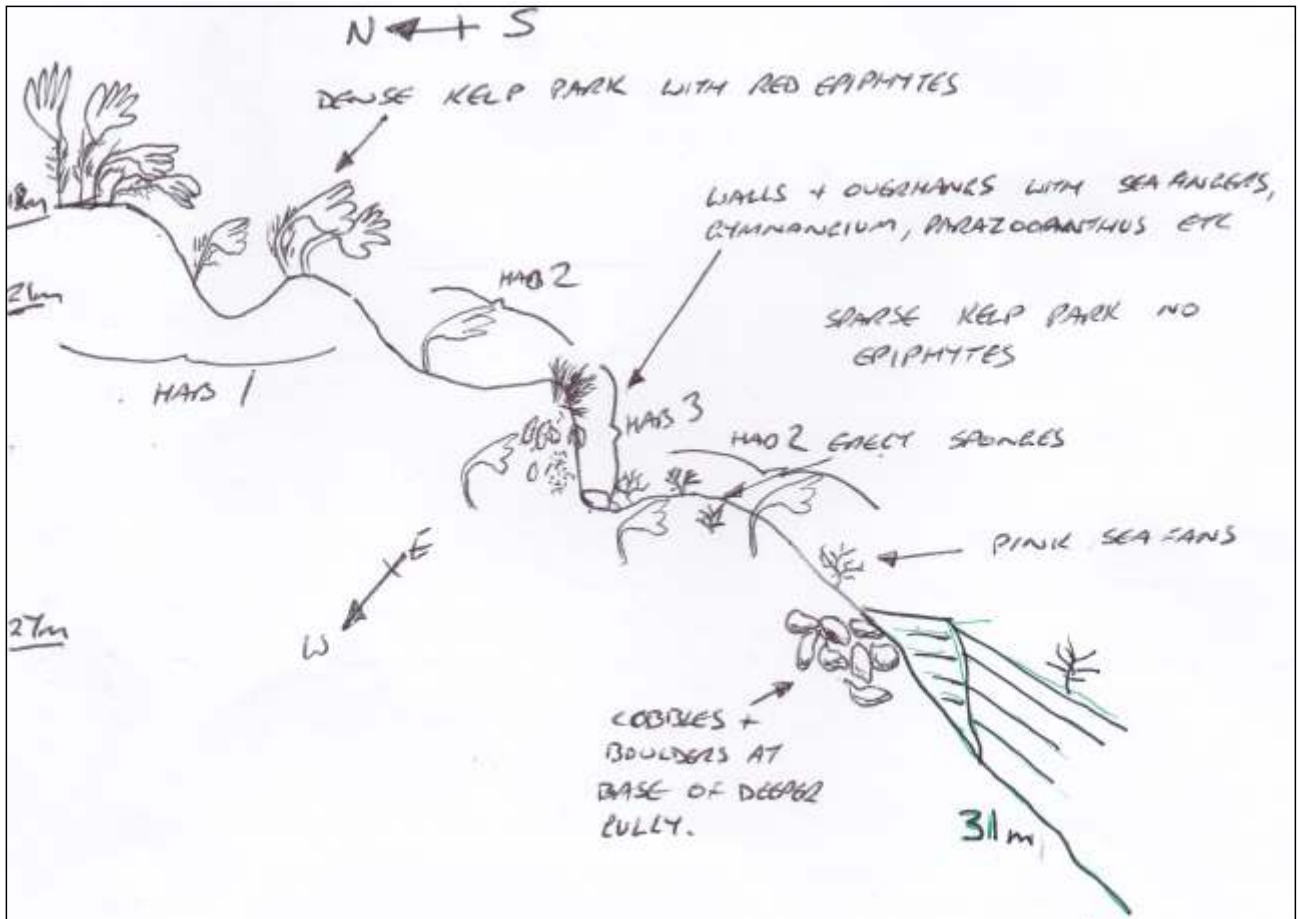 N S
DENSE KELP PARK WITH RED EPIPHYTES
18m
WALLS + OVERHANGS WITH SEA FINGERS,
GYMNANGIUM, PARAZOOANTHUS ETC
21m
HAB 2
SPARSE KELP PARK NO
EPIPHYTES
HAB 1
HAB 3
HAB 2
ERECT SPONGES
E
PINK SEA FANS
27m
W
COBBLES +
BOULDERS AT
BASE OF DEEPER
GULLY.
31m